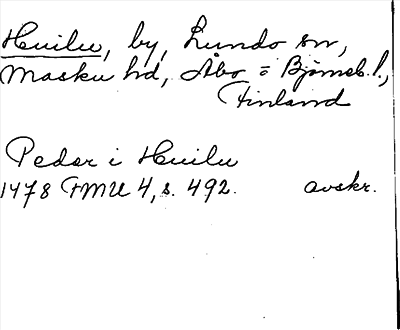 Huilu, by, Lundo sn,
Masku hd, Åbo = Björneb. l.,
Finland
Pedar i Huilu
1478 FMU 4, s. 492. avskr.